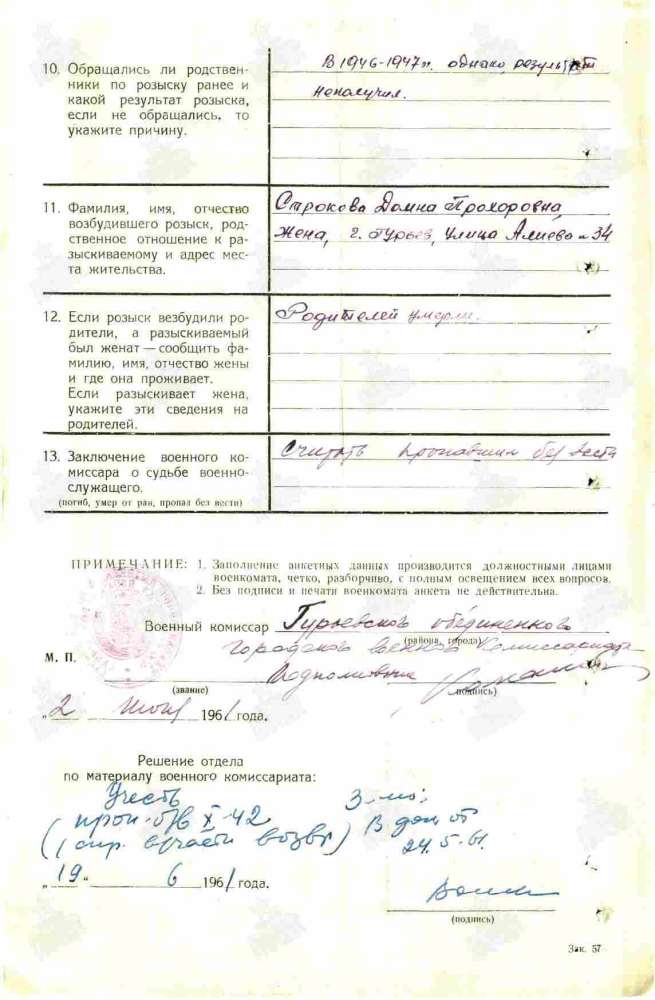 10. Обращались ли родствен-
ники по розыску ранее и
какой результат розыска,
если не обращались, то
укажите причину.
В 1946-1947 г. однако, результат
неполучил.
11. Фамилия, имя, отчество
возбудившего розыск, род-
ственное отношение к ра-
зыскиваемому и адрес мес-
та жительства.
Строкова Домна Прохоровна
Жена, г. Гурьев, улица Алиева н 34
12. Если розыск везбудили ро-
дители, а разыскиваемый
был женат — сообщить фа-
милию, имя, отчество жены
и где она проживает.
Если разыскивает жена,
укажите эти сведения на
родителей.
Родителей умерли.
13. Заключение военного ко-
миссара о судьбе военно-
служащего.
(погиб, умер от ран, пропал без вести)
Считать пропавшим без вести
ПРИМЕЧАНИЕ: 1. Заполнение анкетных данных производится должностными лицами
военкомата, четко, разборчиво, с полным освещением всех вопросов.
2. Без подписи и печати военкомата анкета не действительна.
Военный комиссар Гурьевского объединенного
(района, города)
городского военного комиссариата
М. П.
Подполковник
(звание)
(подпись)
„2 июня 1961 года.
Решение отдела
по материалу военного комиссариата:
Учесть
проп. б/в X-42
3-мо;
В доп. от
24.5.61.
„19“ 6 1961 года.
(подпись)
Зак. 57